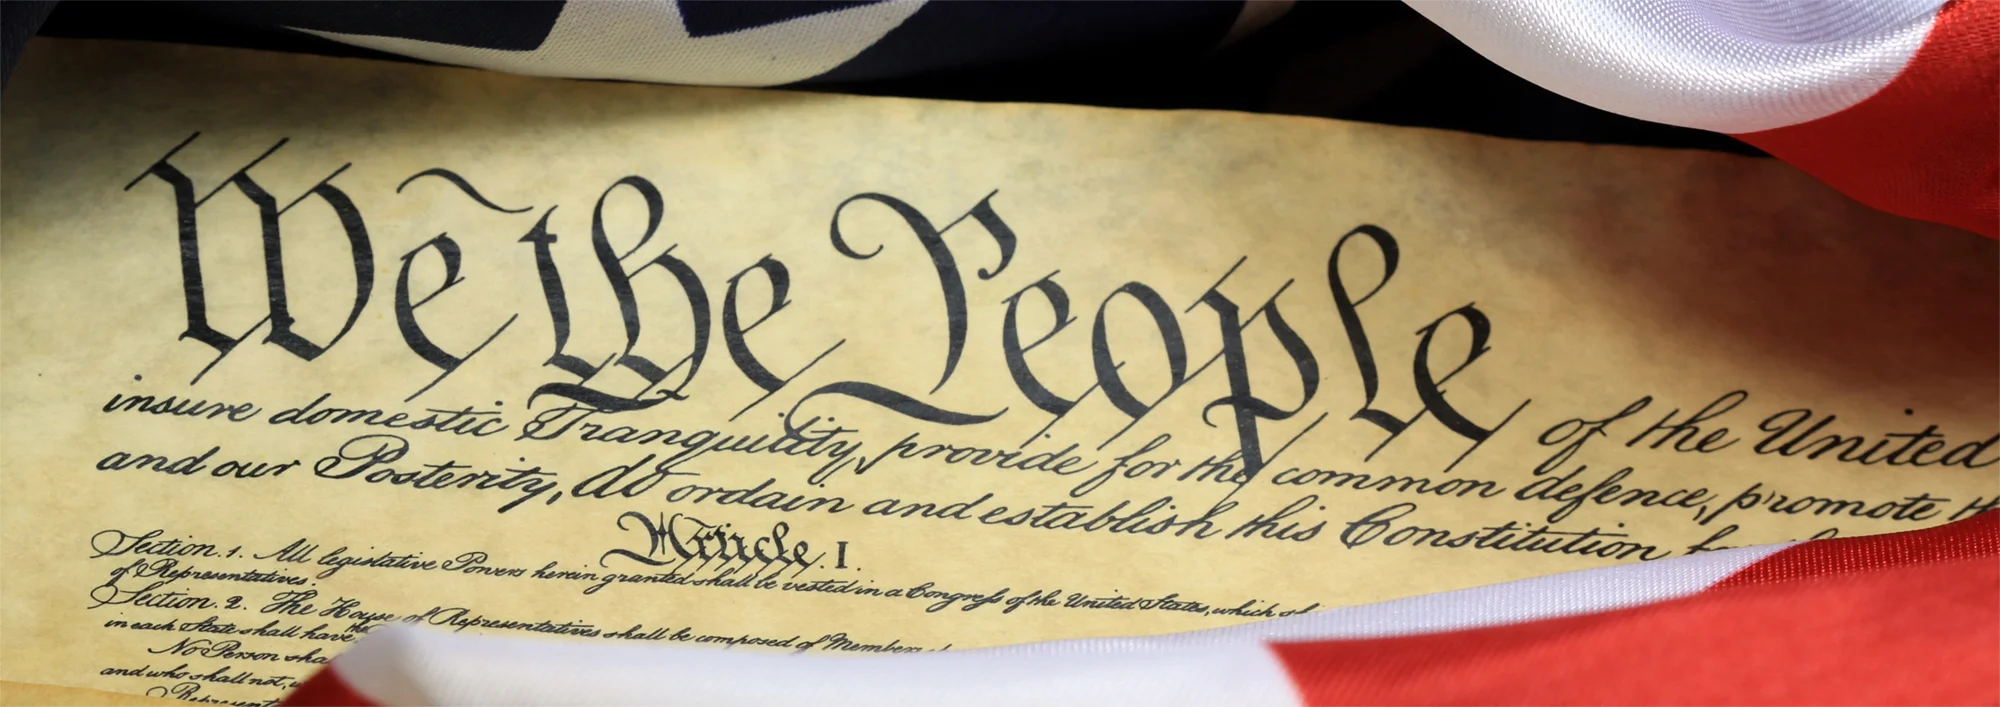 We the People of the United
insure domestic Tranquility, provide for the common defence, promote
and our Posterity, do ordain and establish this Constitution
Article. I.
Section. 1. All legislative Powers herein granted shall be vested in a Congress of the United States, which
of Representatives.
Section. 2. The House of Representatives shall be composed of Members
in each State shall have the
No Person
and who shall not,